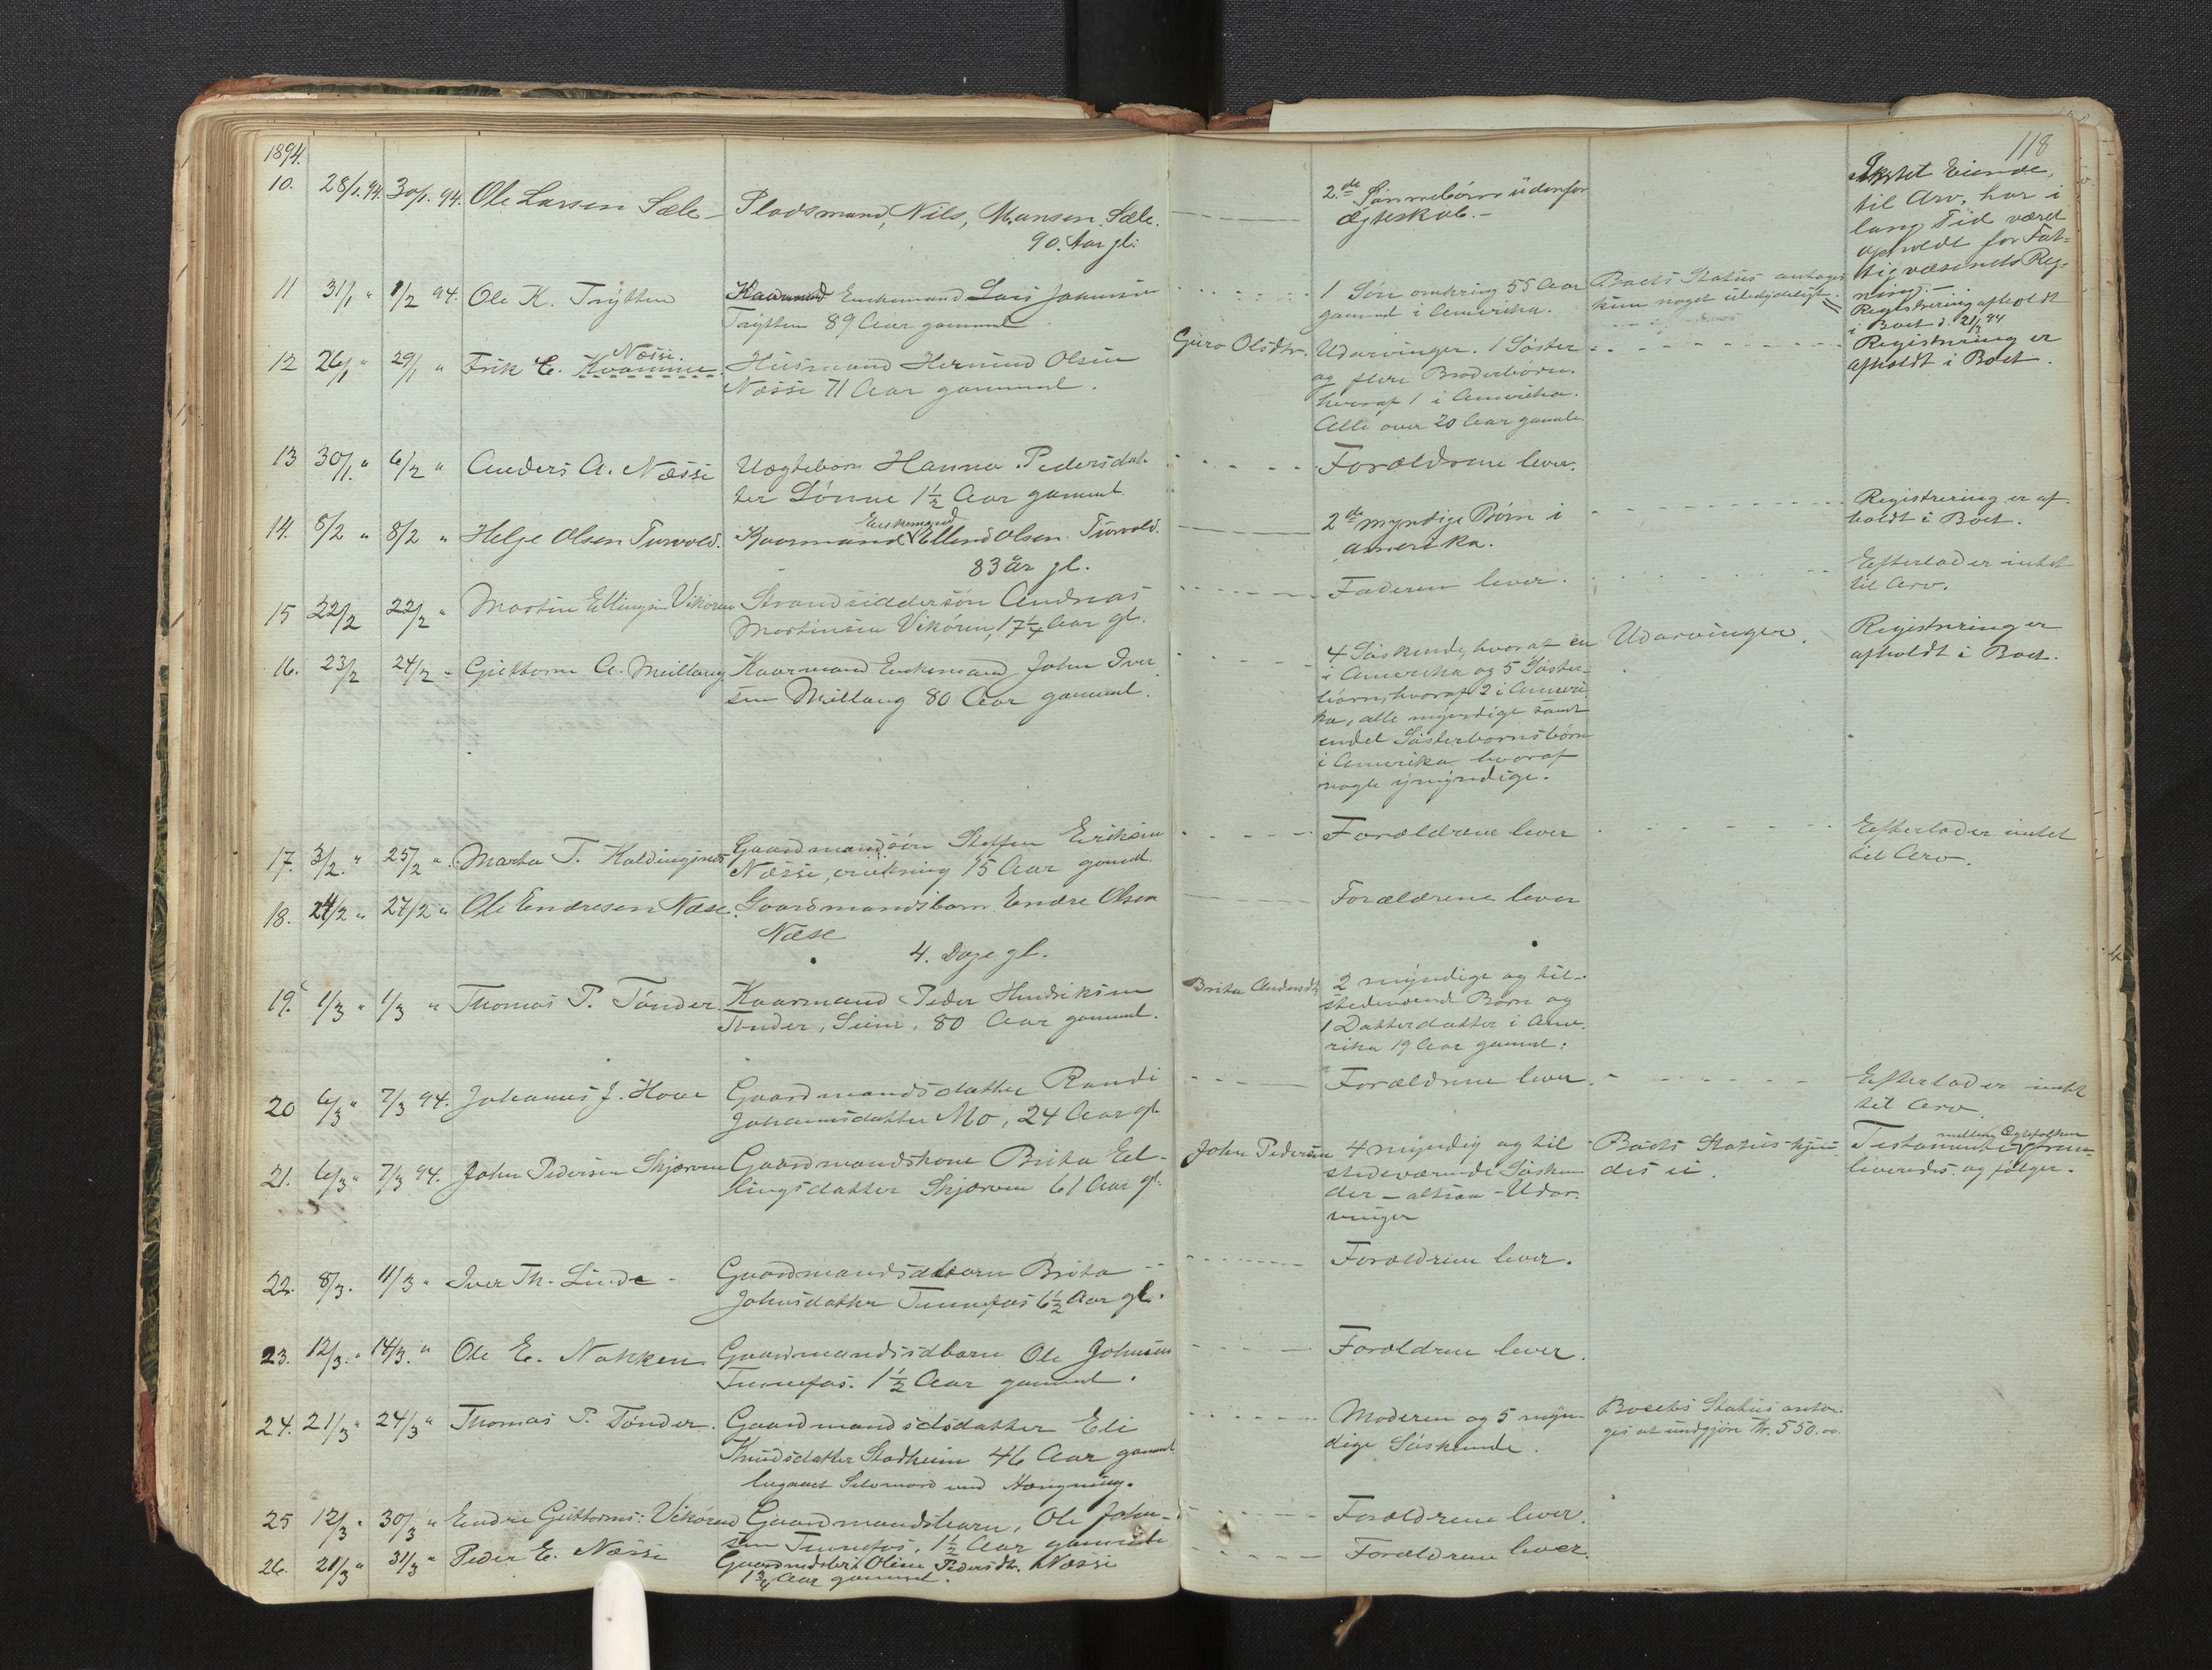 1894.
118
10. 28/1.94. 30/1.94. Ole Larsen Sæle - Pladsmand, Nils, Monsen Sæle.
90. Aar gl:
2de Sønnebørn udenfor
Ægteskab.-
Eiende,
til Arv, har i
lang Tid været
opholdt for Fat-
tigvæsenets Reg-
ning.-
11 31/1 " 1/2 94. Ole K. Trytten Kaarmand Enkemand Lars Johnsen
Trytten 89 Aar gammel
1 Søn omkring 55 Aar
gammel i Amerika.
Boets Status antages
kun noget ubetydeligt.
Registrering afholdt
i Boet d. 21/3 94
12 26/1 " 29/1 " Erik E. Kvamme Næsse. Husmand Hermund Olsen
Næsse 71 Aar gammel.
Guro Olsdtr.
Udarvinger. 1 Søster
og flere Broderbørn.
hvoraf 1 i Amerika.
Alle over 20 Aar gamle
Registrering er
afholdt i Boet.
13 30/1 " 6/2 " Anders A. Næsse Uægtebarn Hanna Pedersdat-
ter Lønne 1½ Aar gammel
Forældrene lever.
14. 5/2 " 8/2 " Helge Olsen Turvold. Kaarmand Enkemand Ellend Olsen Turvold.
83 år gl.
2de myndige Børn i
Amerika.
Registrering er af-
holdt i Boet.
15 22/2 22/2 " Martin Ellingsen Vikøren Strandsiddersøn Andreas
Martinsen Vikøren, 17¼ Aar gl.
Faderen lever.
Efterlader intet
til Arv.
16. 23/2 24/2 - Guttorm A. Mellang Kaarmand Enkemand John Iver-
sen Mellang 80 Aar gammel.
4 Søskende, hvoraf en
i Amerika og 5 Søster-
børn, hvoraf 2 i Ameri-
ka, alle myndige samt
endel Søsterbørnsbørn
i Amerika, hvoraf
nogle umyndige.
Udarvinger.
Registrering er
afholdt i Boet.
17. 3/2. " 25/2 " Marta T. Gaardmandssøn Steffen Eriksen
Næsse, omkring 15 Aar gammel.
Forældrene lever
Efterlader intet
til Arv.
18. 24/2 " 27/2 " Ole Endresen Næse. Gaardmandsbarn Endre Olsen
Næse
4. Dage gl.
Forældrene lever
19. 1/3 " 1/3 " Thomas P. Tønder. Kaarmand Peder Hendriksen
Tønder, 80 Aar gammel.
Brita Andersdtr
2 myndige og til-
stedeværende Børn og
1 Datterdatter i Ame-
rika 19 Aar gammel.
20 6/3 " 7/3 94. Johannes J. Hove Gaardmandsdatter Randi
Johannesdatter Mo, 24 Aar gl.
Forældrene lever.
Efterlader intet
til Arv.
21. 6/3 " 7/3 94. John Pedersen Skjærven Gaardmandskone Brita El-
lingsdatter Skjærven 61 Aar gl.
John Pedersen
4 myndig og til
stedeværende Sösken-
der - altsaa - Udar-
vinger
Boets Status kjen-
des ei.
mellem Ægtefolkene
Testamente frem-
leveredes og følger.
22. 8/3. 11/3 " Iver Th. Linde - Gaardmandsbarn Brita
Johnsdatter Tennefos 6½ Aar gl.
Forældrene lever.
23. 12/3. " 14/3. " Ole E. Nokken Gaardmandsbarn Ole Johnsen
Tennefos. 1½ Aar gammel.
Forældrene lever.
24. 21/3 " 24/3 " Thomas P. Tønder. Gaardmandsdatter Eli
Knudsdatter Stadheim 46 Aar gammel
begaaet Selvmord ved Hængning.
Moderen og 5 myn-
dige Søskende.
Boets Status anta-
ges at undgjøre Kr. 550.00
25 12/3 " 30/3 " Endre Guttorms: Vikøren Gaardmandsbarn, Ole John-
sen Tennefos, 1½ Aar gammel
Forældrene lever.
26. 21/3 " 31/3 " Peder E. Næsse Olina Pedersdtr. Næsse
1¾ Aar gammel.
Forældrene lever.